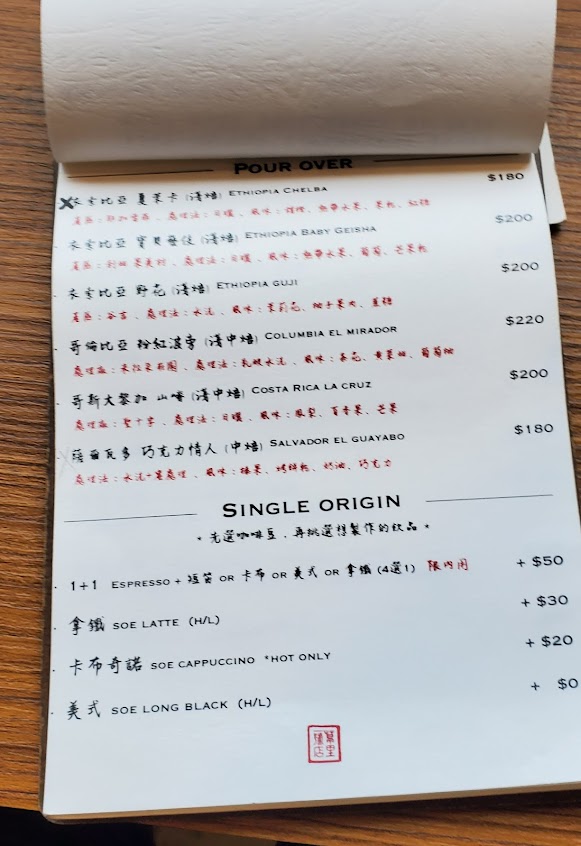 POUR OVER
衣索比亞 夏茉卡 (淺焙) ETHIOPIA CHELBA $180
產區:耶加雪菲、處理法:日曬、風味:柑橘、熱帶水果、果乾、紅糖
衣索比亞 寶貝藝伎 (淺焙) ETHIOPIA BABY GEISHA $200
處理法:日曬、風味:熱帶水果、葡萄、芒果乾
衣索比亞 野花 (淺焙) ETHIOPIA GUJI $200
產區:谷吉、處理法:水洗、風味:茉莉花、柚子果肉、蔗糖
哥倫比亞 粉紅波旁 (淺中焙) COLUMBIA EL MIRADOR $220
處理廠:米拉朵莊園、處理法:乳酸水洗、風味:茶花、黃果柚、葡萄柚
哥斯大黎加 山峰 (淺中焙) COSTA RICA LA CRUZ $200
處理廠:聖十字、處理法:日曬、風味:鳳梨、百香果、芒果
薩爾瓦多 巧克力情人 (中焙) SALVADOR EL GUAYABO $180
處理法:水洗+蜜處理、風味:榛果、烤餅乾、奶油、巧克力
SINGLE ORIGIN
* 先選咖啡豆,再挑選想製作的飲品 *
1+1 ESPRESSO + 短笛 OR 卡布 OR 美式 OR 拿鐵 (4選1) 限內用 + $50
拿鐵 SOE LATTE (H/L) + $30
卡布奇諾 SOE CAPPUCCINO *HOT ONLY + $20
美式 SOE LONG BLACK (H/L) + $0